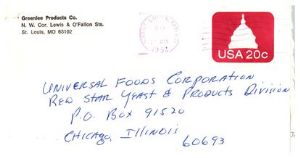 Greenlee Products Co.
N. W. Cor. Lewis & O'Fallon Sts.
St. Louis, MO 63102
USA 20c
Universal Foods Corporation
Red Star Yeast & Products Division
P.O. Box 91520
Chicago Illinois
60693